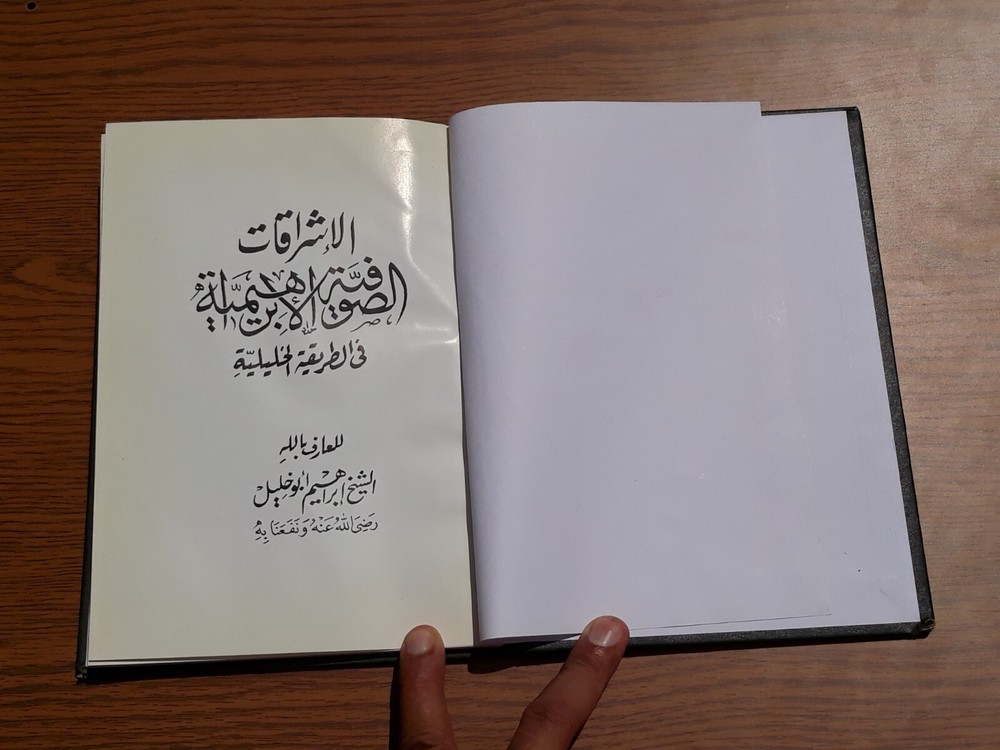 الإشراقات
الصوفيّة الإبراهيميّة
فى الطريقة الخليليّة
للعارف بالله
الشيخ إبراهيم أبو خليل
رَضِىَ اللهُ عَنْهُ وَنَفَعَنَا بِهِ